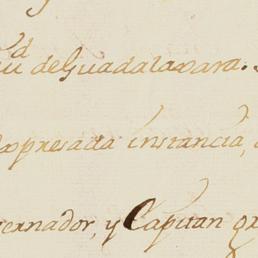 de Guadalaxara.
expresada instancia,
vernador, y Capitan